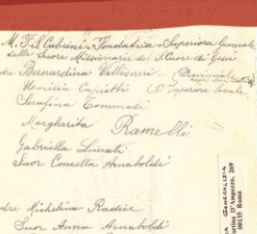 M. F. S. Cabrini - Fondatrice - Superiora Generale
delle Suore Missionarie del S. Cuore di Gesù
Bernardina Vallisneri - Provinciale
Umilia Capietti (Superiora Locale
Serafina Tommasi
Margherita Ramelli
Gabriella Linati
Suor Concetta Arnaboldi
dre Michelina Radice
Suor Aurora Arnaboldi
A GENERALIZIA
ortina D'Ampezzo, 269
00135 Roma